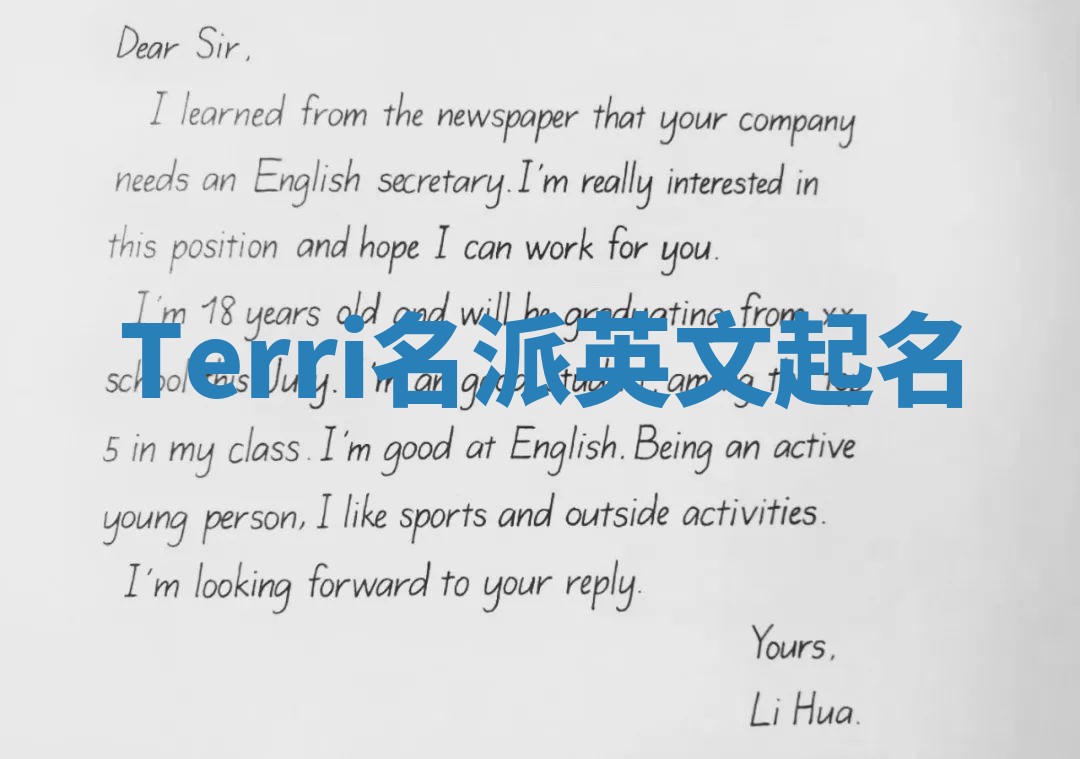 Dear Sir,
I learned from the newspaper that your company
needs an English secretary. I'm really interested in
this position and hope I can work for you.
I'm 18 years old and will be graduating from xx
Terri名派英文起名
school this July. I'm an good student, among the top
5 in my class. I'm good at English. Being an active
young person, I like sports and outside activities.
I'm looking forward to your reply.
Yours,
Li Hua.